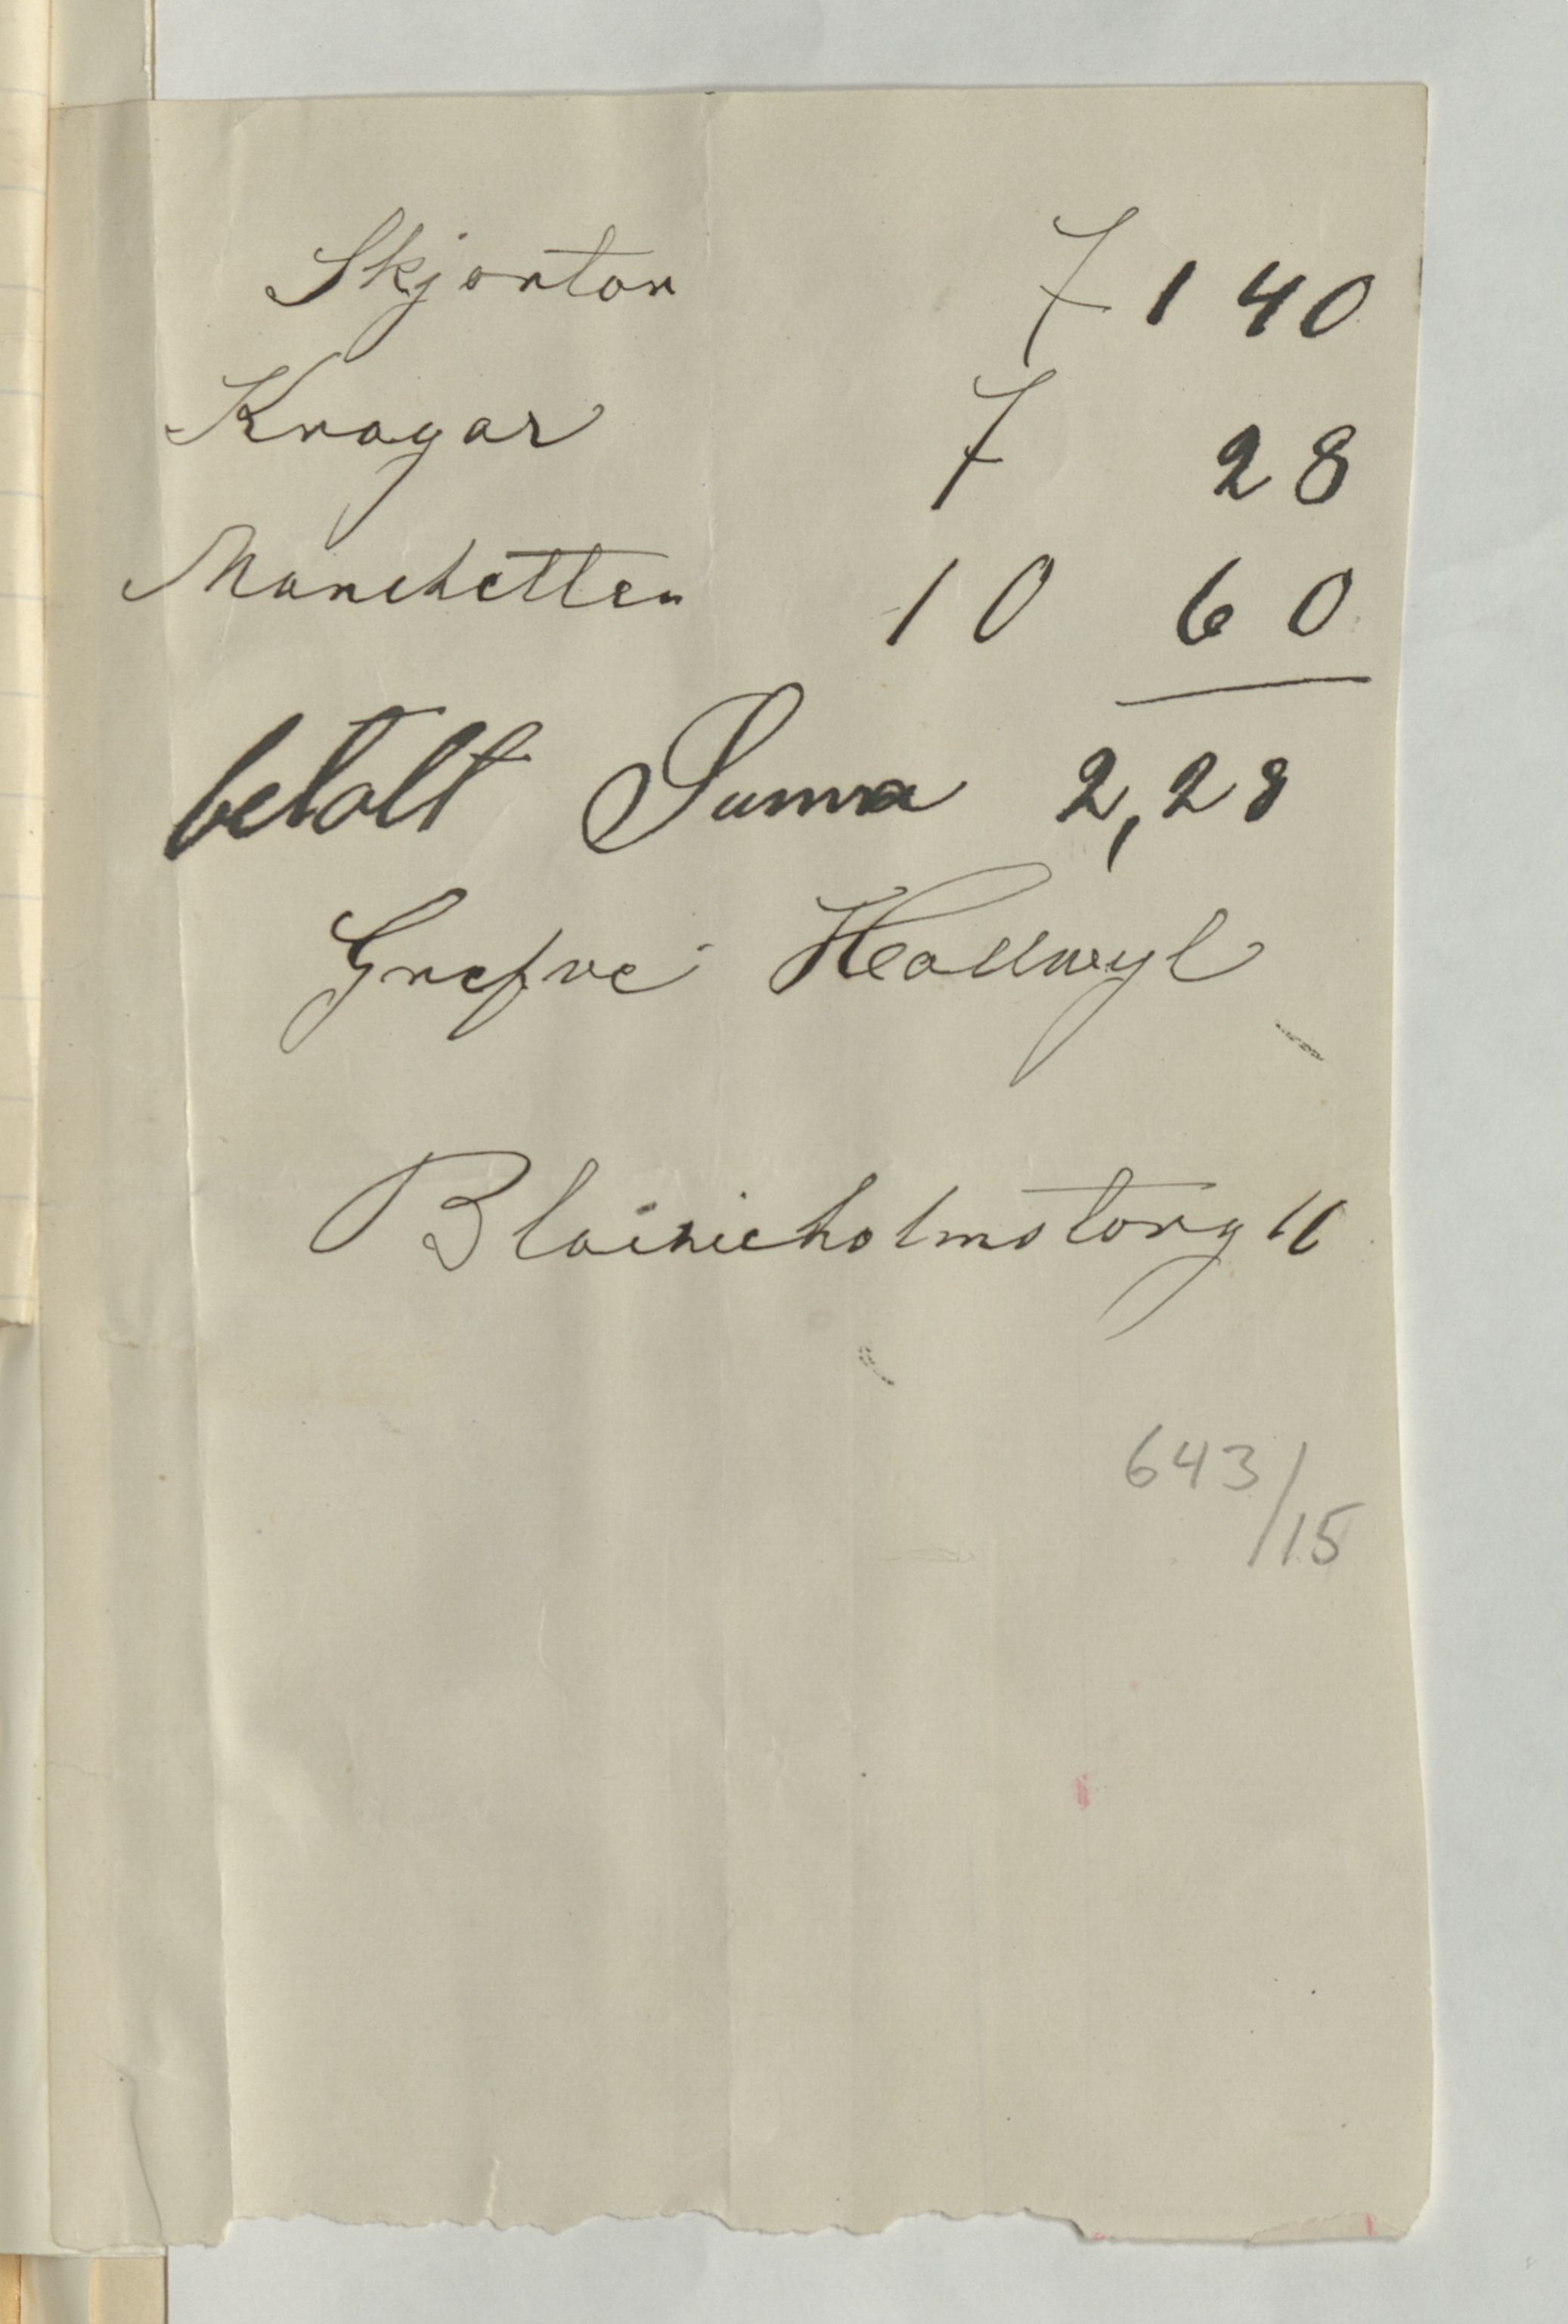 Skjortor 7 1 40
Kragar 7 28
Manchetter 10 60
betalt Suma 2,28
Grefve Hallwyl
Blaisieholmstorg 11
643/15